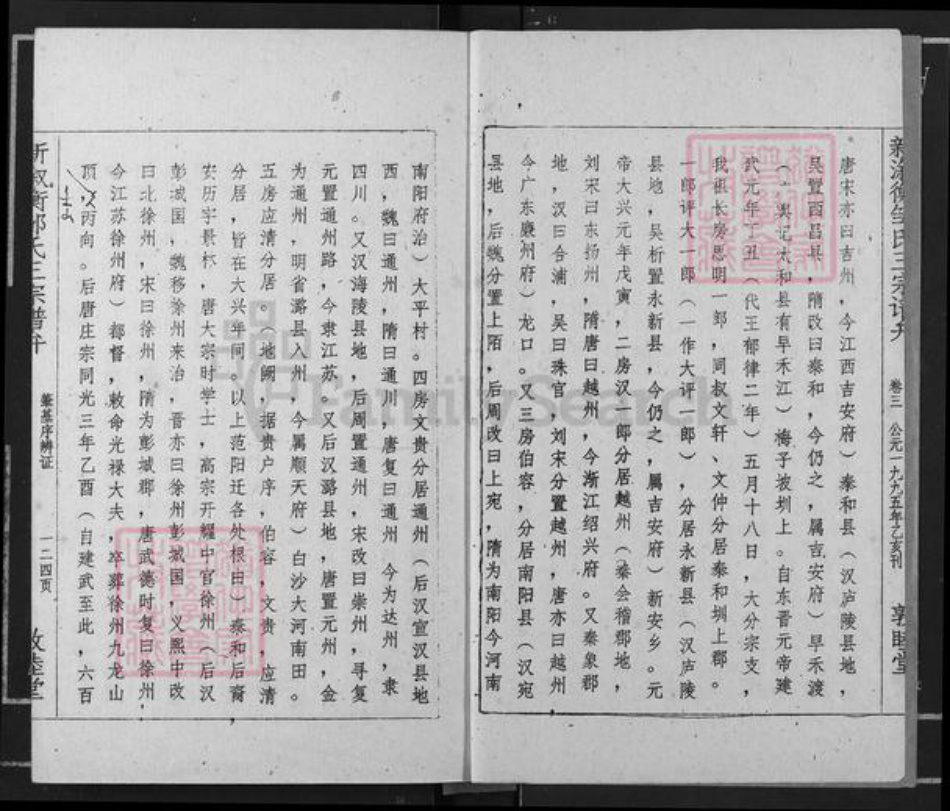 唐宋亦曰吉州，今江西吉安府）泰和县（汉庐陵县地，
吴置西昌县，隋改曰泰和，今仍之，属吉安府）早禾渡
舆记太和县有早禾江）梅子坡圳上。自东晋元帝建
武元年丁丑（代王郁律二年）五月十八日，大分宗支，
我祖长房思明一郎，同叔文轩、文仲分居泰和圳上郡。
一郎评大一郎（一作大评一郎），分居永新县（汉庐陵
县地，吴析置永新县，今仍之，属吉安府）新安乡。元
帝大兴元年戊寅，二房汉一郎分居越州（秦会稽郡地，
刘宋曰东扬州，隋唐曰越州，今浙江绍兴府。又秦象郡
地，汉曰合浦，吴曰珠官，刘宋分置越州，唐亦曰越州
今广东廉州府）龙口。又三房伯容，分居南阳县（汉宛
县地，后魏分置上陌，后周改曰上宛，隋为南阳今河南
卷三
公元一九九五年乙亥刊
敦睦堂
南阳府治）大平村。四房文贵分居通州（后汉宣汉县地
西，魏曰通州，隋曰通川，唐复曰通州，今为达州，隶
四川。又汉海陵县地，后周置通州，宋改曰崇州，寻复
元置通州路，今隶江苏。又后汉潞县地，唐置元州，金
为通州，明省潞县入州，今属顺天府）白沙大河南田。
五房应清分居。（地阙，据贵户序，伯容，文贵，应清
分居，皆在大兴年间。以上范阳迁各处根由）泰和后裔
安历字景怀，唐大宗时学士，高宗开耀中官徐州（后汉
彭城国，魏移徐州来治，晋亦曰徐州彭城国，义熙中改
曰北徐州，宋曰徐州，隋为彭城郡，唐武德时复曰徐州
今江苏徐州府）都督，敕命光禄大夫，卒葬徐州九龙山
顶，丙向。后唐庄宗同光三年乙酉（自建武至此，六百
肇基序辨证
一二四页
敦睦堂
FamilySearch